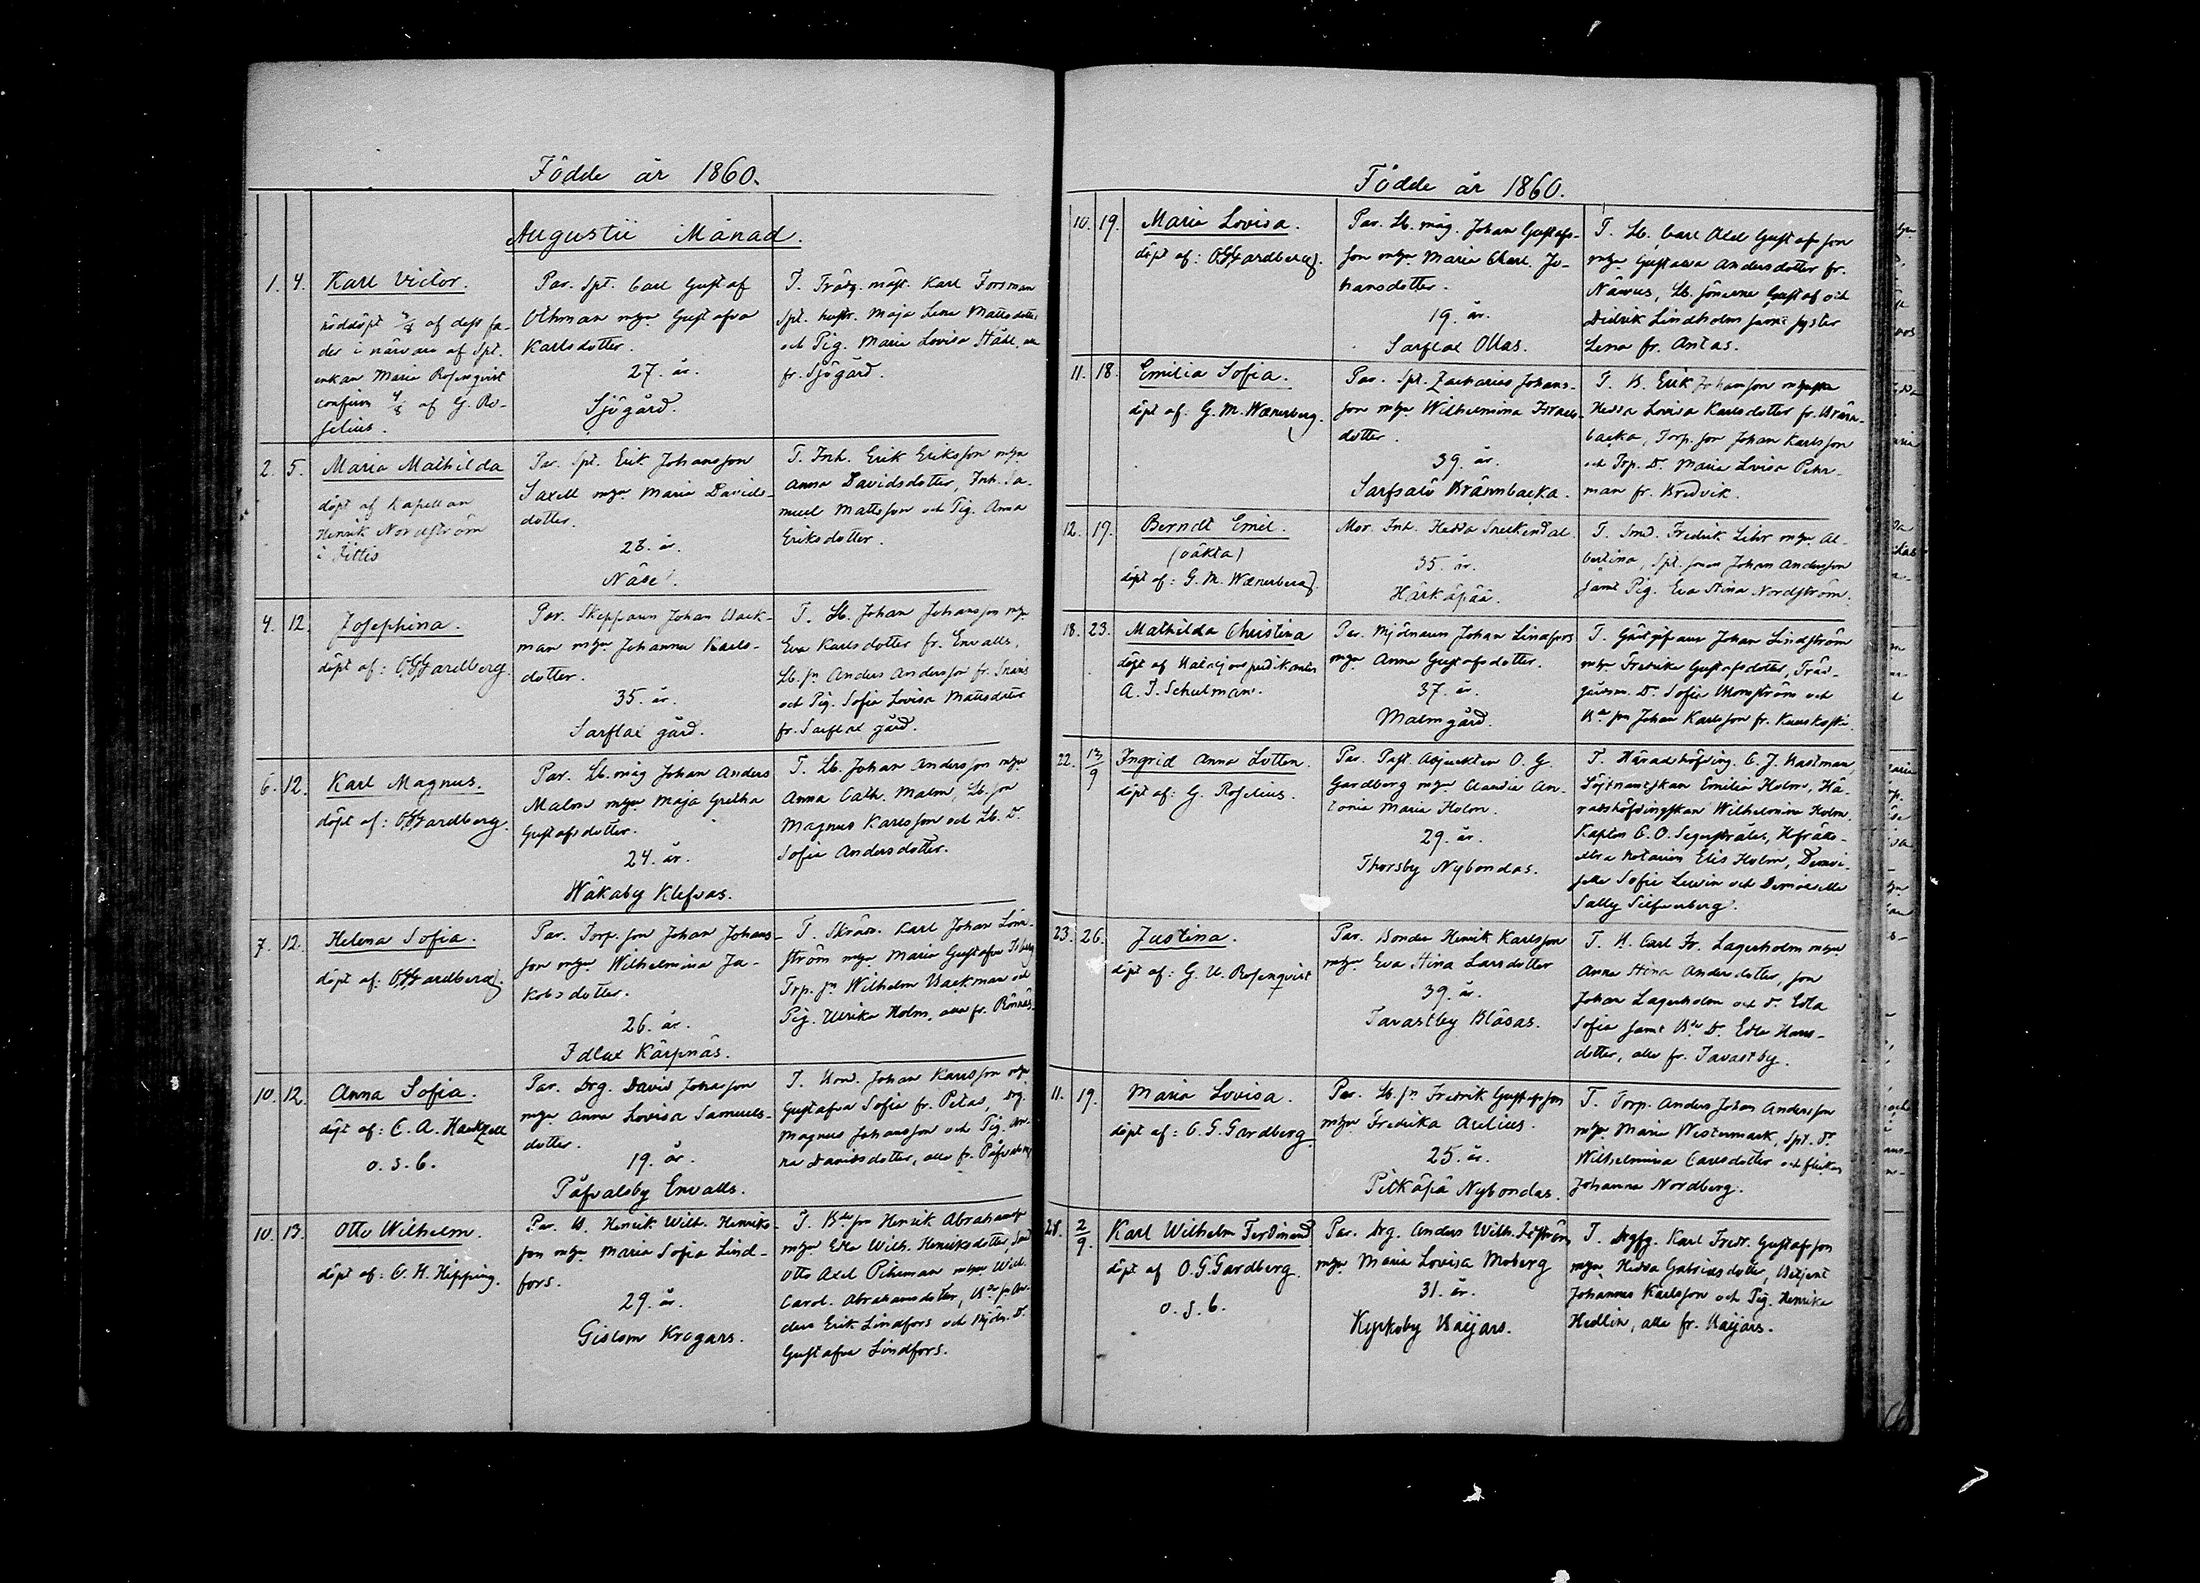 Födde år 1860.
Augustii Månad.
1. 4. Karl Victor.
nöddöpt af dess fa-
der i närvaro af Spt.
enkan Maria Rosenqvist
confirm af G. Ro-
selius.
Par. Spt. Carl Gustaf
Öhman mhu Gustafva
Karlsdotter.
27. år.
Sjögård.
T. Trädg. mäst. Karl Forsman
Spt. hustr. Maja Lena Mattsdotter
och Pig. Maria Lovisa Ståhl, alla
fr. Sjögård.
2. 5. Maria Mathilda
döpt af Kapellan
Henrik Nordström
i Pittis
Par. Spt. Erik Johansson
Saxell mhu Maria Davids-
dotter.
26. år.
Näse.
T. Inh. Erik Eriksson mhu
Anna Davidsdotter, Inh. Sa-
muel Mattsson och Pig. Anna
Eriksdotter.
4. 12. Josephina.
döpt af: OGGardberg.
Par. Skepparen Johan Back-
man mhu Johanna Karls-
dotter.
35. år.
Sarflax gård.
T. Lb. Johan Johansson mhu
Eva Karlsdotter fr. Envalls,
Lb. sn Anders Andersson fr.
och Pig. Sofia Lovisa Mattsdotter
fr. Sarflax gård.
6. 12. Karl Magnus.
döpt af: OGGardberg.
Par. Lb. måg Johan Anders
Malm mhu Maja Gretha
Gustafsdotter.
24. år.
Wåkaby Klefvas.
T. Lb. Johan Andersson mhu
Anna Cath. Malm, Lb. son
Magnus Karlsson och Lb. D.
Sofia Andersdotter.
7. 12. Helena Sofia.
döpt af: OGGardberg.
Par. Torp. son Johan Johans-
son mhu Wilhelmina Ja-
kobsdotter.
26. år.
Idlax Kärpnäs.
T. Skräd. Karl Johan Lönn-
ström mhu Maria Gustafva
Trp. sn Wilhelm Backman och
Pig. Ulrika Holm, alla fr. Rönnäs.
10. 12. Anna Sofia.
döpt af: C. A. Hackzell
o. s. b.
Par. Drg. David Johansson
mhu Anna Lovisa Samuels-
dotter.
19. år.
Påfvalsby Envalls.
T. Bond. Johan Karlsson mhu
Gustafva Sofia fr. Petas, Drg.
Magnus Johansson och Pig. An-
na Davidsdotter, alla fr. Påfvalsby
10. 13. Otto Wilhelm.
döpt af: A. H. Hipping.
Par. B. Henrik Wilh. Henriks-
son mhu Maria Sofia Lind-
fors.
29. år.
Gislom Krogars.
T. Bde sn Henrik Abrahamss
mhu Eva Wilh. Henriksdotter,
Otto Axel Pihrman mhu Wilh.
Carol. Abrahamsdotter, Bde sn An-
ders Erik Lindfors och Mjöln. D.
Gustafva Lindfors.
Födde år 1860.
10. 19. Maria Lovisa.
döpt af: OGGardberg.
Par. Lb. måg. Johan Gustafs-
son mhu Maria Charl. Jo-
hansdotter.
19. år.
Sarflax Ollas.
T. Lb. Carl Axel Gustafsson
mhu Gustava Andersdotter fr.
Lb. sönerne Gustaf och
Didrik Lindholm samt syster
Lena fr. Antas.
11. 18. Emilia Sofia.
döpt af: G. M. Wænerberg.
Par. Spt. Zacharias Johans-
son mhu Wilhelmina Israels-
dotter.
39. år.
Sarfsalö Brännbacka.
T. B. Erik Johansson
Hedda Lovisa Karlsdotter fr. Bränn-
backa, Torp. son Johan Karlsson
och Trp. D. Maria Lovisa Pehr-
man fr. Kredvik.
12. 19. Berndt Emil.
(oäkta)
döpt af: G. M. Wænerberg.
Mor. Inh. Hedda Snellendal.
35. år.
Härkäpää.
T. Smd. Fredrik Lihr mhu Al-
bertina, Spt. sonen Johan Andersson
samt Pig. Eva Stina Nordström.
18. 23. Mathilda Christina
döpt af Bataljons predikanten
A. T. Schulman.
Par. Mjölnaren Johan Lindfors
mhu Anna Gustafsdotter.
37. år.
Malmgård.
T. Gästgifvare Johan Lindström
mhu Fredrika Gustafsdotter, Träd-
gårdsm. D. Sofia Blomström och
Bde sn Johan Karlsson fr. Kuuskoski.
22. 13/9 Ingrid Anna Lotten.
döpt af: G. Roselius.
Par. Past. Adjunkten O. G.
Gardberg mhu Claudia An-
tonia Maria Holm.
29. år.
Thorsby Nybondas.
T. Häradshöfding. C. J. Hastman,
Löjtnantskan Emilia Holm, Hä-
radshöfdingskan Wilhelmina Holm,
Kaplan C. O. Segerstråle, Hofrätts-
extra notarien Elis Holm, Demoi-
selle Sofie Lewin och Demoiselle
Sally Silfverberg.
23. 26. Justina.
döpt af: G. U. Rosenqvist
Par. Bonden Henrik Karlsson
mhu Eva Stina Larsdotter
39. år.
Tavastby Blåsas.
T. B. Carl Fr. Lagerholm mhu
Anna Stina Andersdotter, son
Johan Lagerholm och D. Edla
Sofia samt Bde D. Edla Hans-
dotter, alla fr. Tavastby.
11. 19. Maria Lovisa.
döpt af: O. G. Gardberg.
Par. Lb. sn Fredrik Gustafsson
mhu Fredrika Axelius.
25. år.
Pitkäpä Nybondas.
T. Torp. Anders Johan Andersson
mhu Maria Westermark, Spt. D.
Wilhelmina Carlsdotter och flickan
Johanna Nordberg.
28. 2/9. Karl Wilhelm Ferdinand
döpt af O. G. Gardberg.
o. s. b.
Par. Drg. Anders Wilh.
mhu Maria Lovisa Moberg
31. år.
Kyrkoby Baijars.
T. Drgfg. Karl Fredr. Gustafsson
mhu Hedda Gabrielsdotter, Betjent
Johannes Karlsson och Pig. Henrika
Hedlin, alla fr. Baijars.